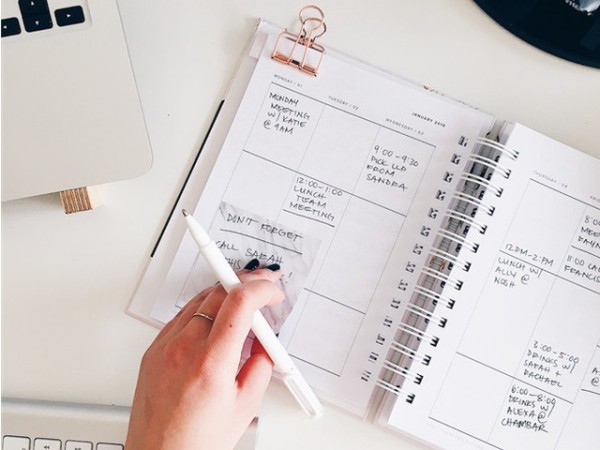 JANUARY 2018
MONDAY / 01
TUESDAY / 02
WEDNESDAY / 03
MONDAY
MEETING
W/ KATIE
@ 9AM
9:00-9:30
PICK LLD
FROM
SANDRA
12:00-1:00
LUNCH
TEAM
MEETING
DON'T FORGET
CALL SARAH
THIS
!
THURSDAY / 04
12PM-2PM
LUNCH W/
ALLY @
NOSH
3:00-5:00
DRINKS W/
SARAH +
RACHAEL
6:00-8:00
DRINKS W/
ALEXA @
CHAMBAR
8:0
MEE
11:00
CALL
FRANCIS